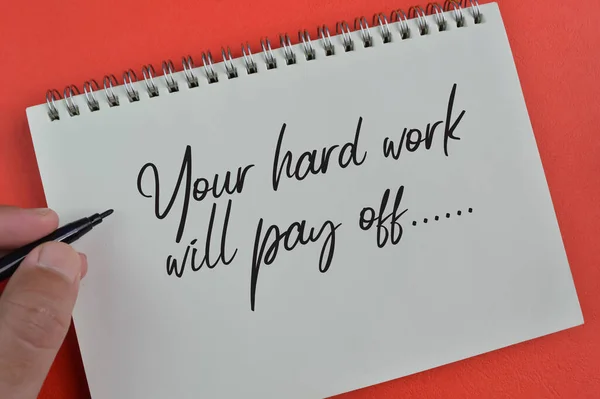 Your hard work
will pay off......